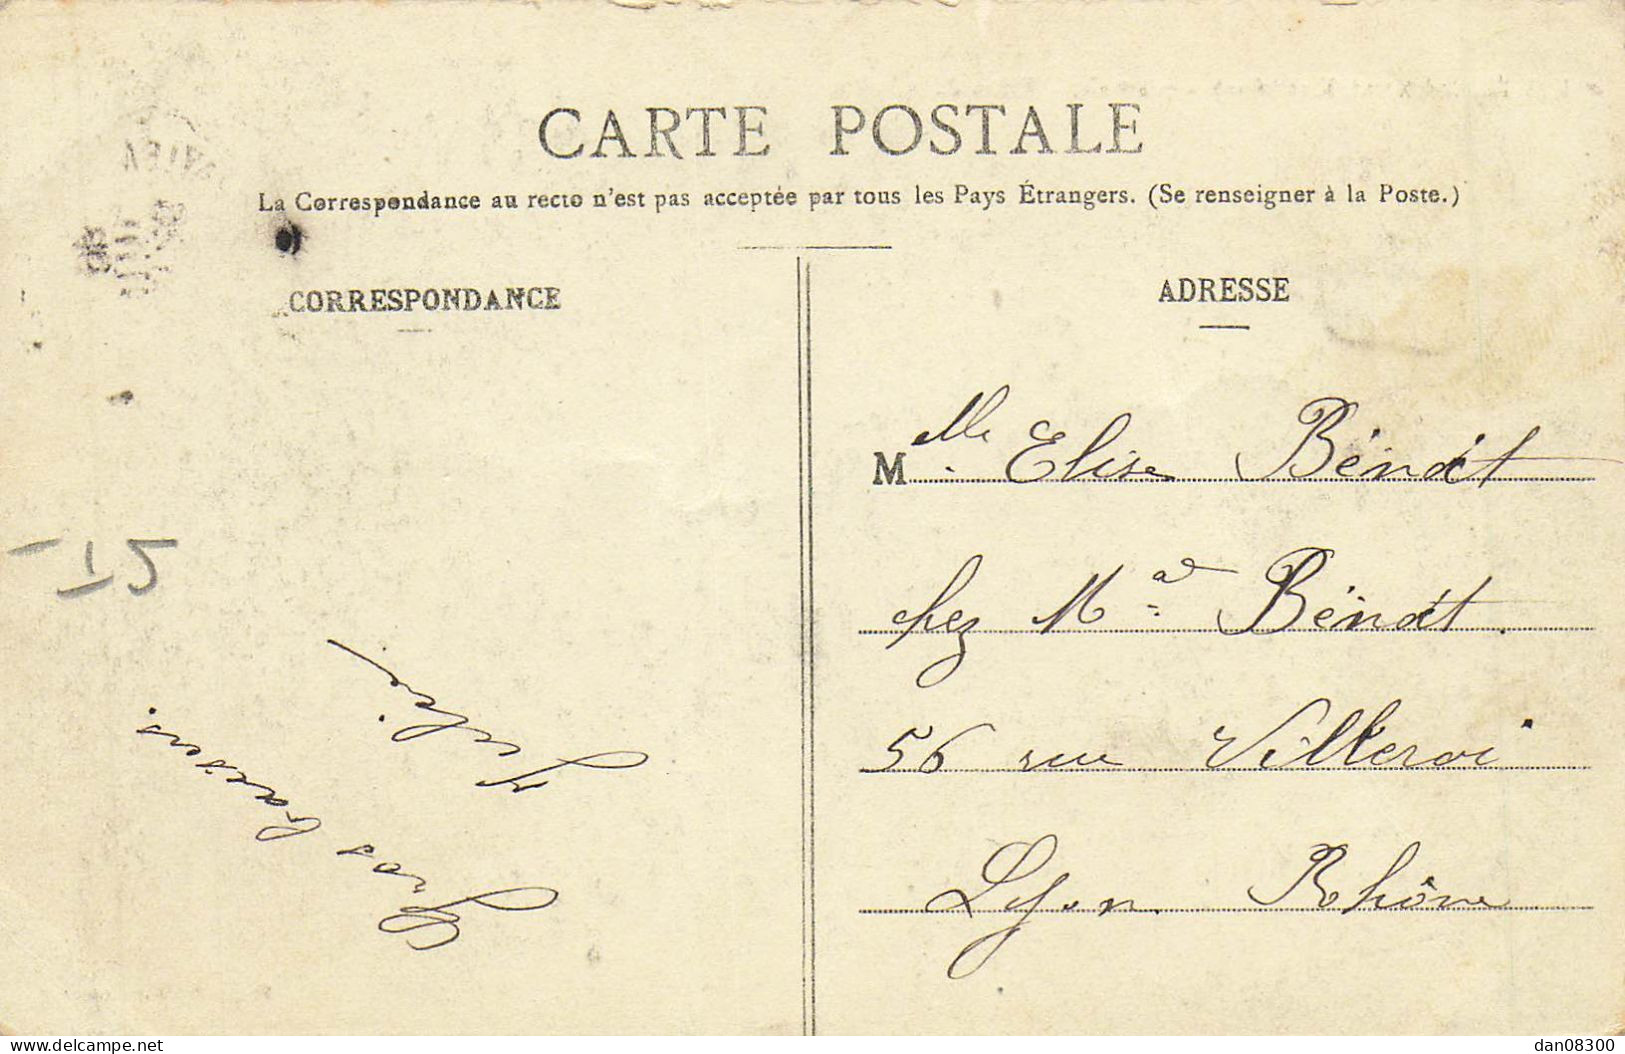 CARTE POSTALE
La Correspondance au recto n'est pas acceptée par tous les Pays Étrangers. (Se renseigner à la Poste.)
CORRESPONDANCE
ADRESSE
Mlle Elise Bénoit
chez Mad Bénoit.
56 rue Villeroi
Lyon Rhône
-15
Gros baisers.
delcampe.net
dan08300